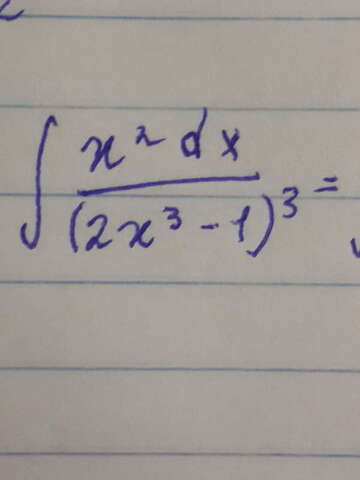 ∫ x² dx / (2x³ - 1)³ =